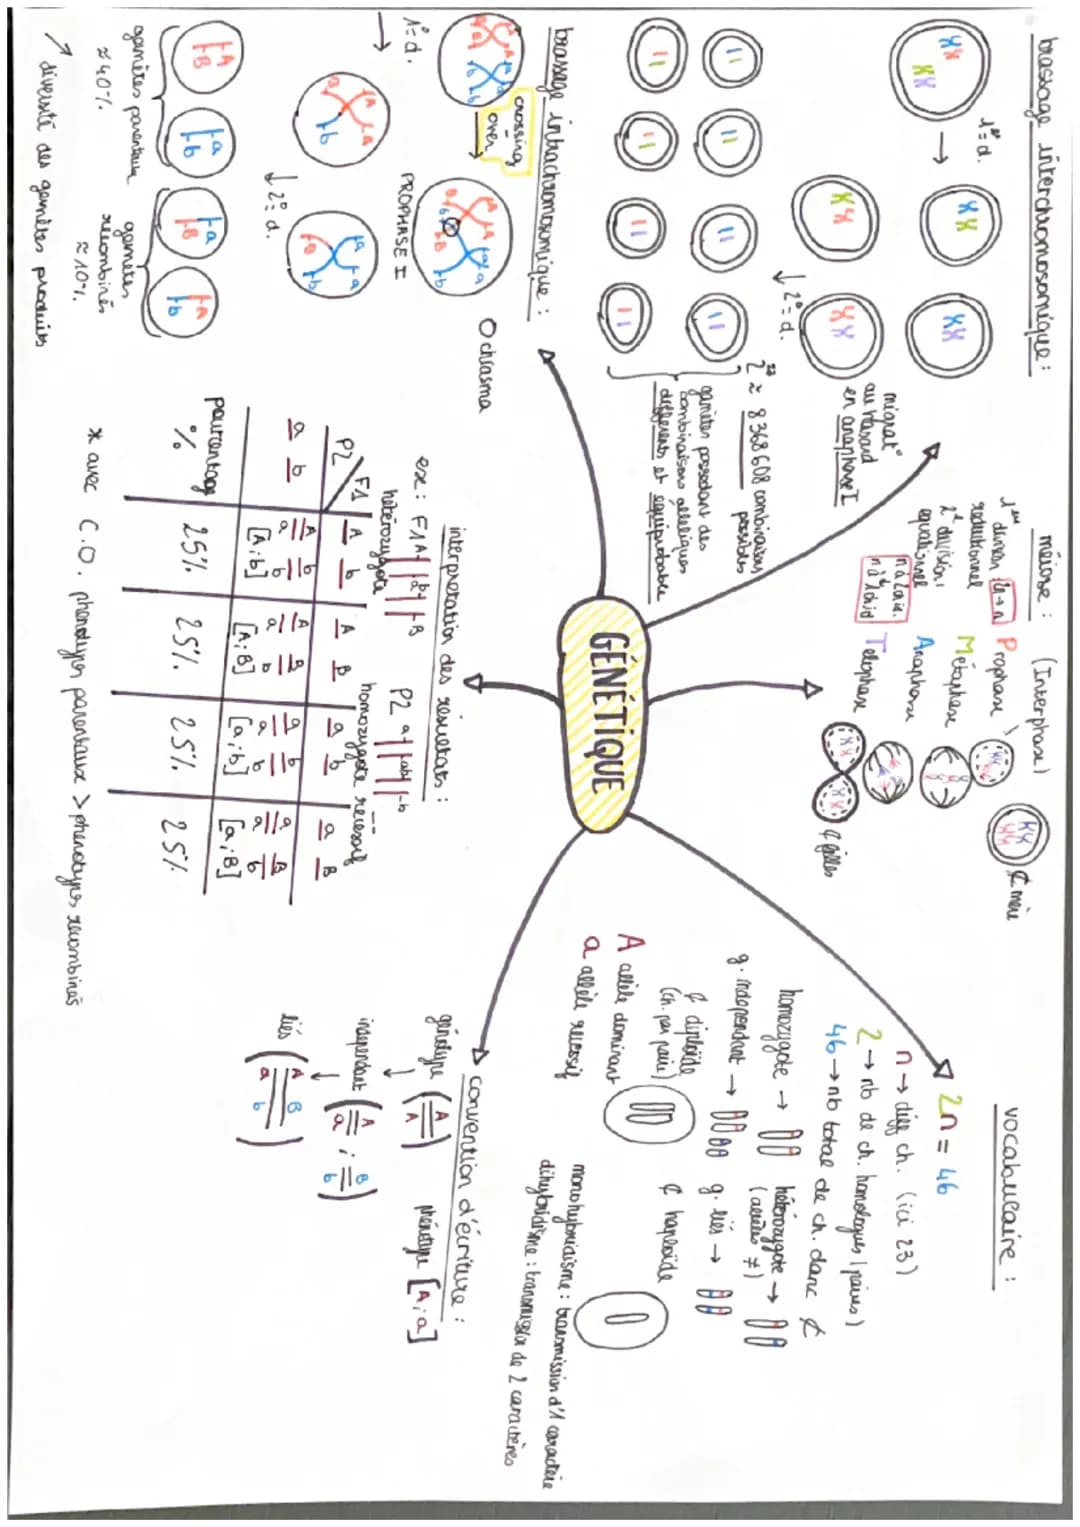 GÉNÉTIQUE
brassage interchromosomique :
1ère d.
2e d.
migrat°
au hasard
en anaphase I
2²³ ≈ 8 368 608 combinaisons
possibles
gamètes possédant des
combinaisons alléliques
différents et équiprobable
méiose : (Interphase)
1ère division : 2n → n
réductionnel
2e division :
équationnel
n à 2 chr.
n à 1 chid
Prophase
Métaphase
Anaphase
Télophase
¢ mère
¢ filles
vocabulaire :
2n = 46
n → diff ch. (ici 23)
2 → nb de ch. homologues (paires)
46 → nb total de ch. danc ¢
homozygote →
hétérozygote →
(allèles ≠)
g. indépendant →
g. liés →
¢ diploïde
(ch. par paire)
¢ haploïde
A allèle dominant
a allèle récessif
monohybridisme : transmission d'1 caractère
dihybridisme : transmission de 2 caractères
brassage intrachromosomique :
crossing
over
1ère d.
PROPHASE I
O chiasma
2e d.
A A a a
B B b b
gamètes parentaux
≈ 40%
gamètes
recombinés
≈ 10%
↗ diversité des gamètes produits
interprétation des résultats :
ex : F1 A b a B
hétérozygote
P2 a b a b
homozygote récessif
P2 F1 A b A B a b a B
a b A b A B a b a B
a b a b a b a b
[A;b] [A;B] [a;b] [a;B]
pourcentage
% 25% 25% 25% 25%
* avec C.O. phénotypes parentaux > phénotypes recombinés
convention d'écriture :
génotype (A/A) phénotype [A;a]
indépendant (A/a ; B/b)
liés (A B / a b)